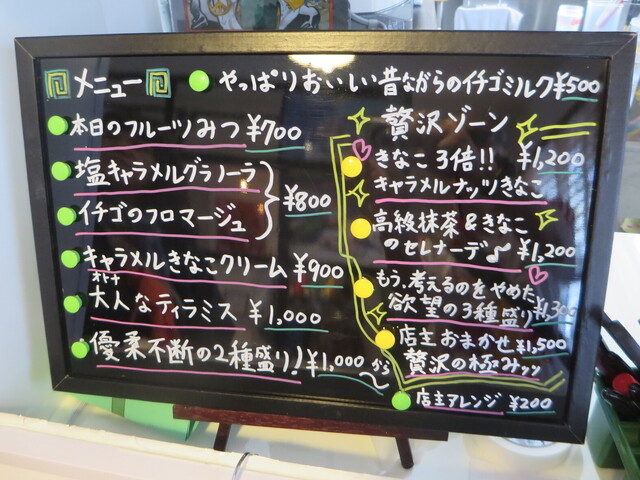 メニュー
やっぱりおいしい昔ながらのイチゴミルク¥500
本日のフルーツみつ ¥700
塩キャラメルグラノーラ
イチゴのフロマージュ
¥800
キャラメルきなこクリーム ¥900
オトナ
大人なティラミス ¥1,000
優柔不断の2種盛り! ¥1,000から〜
贅沢ゾーン
きなこ3倍!! ¥1,200
キャラメルナッツきなこ
高級抹茶&きなこ
のセレナーデ♪ ¥1,200
もう、考えるのをやめた
欲望の3種盛り ¥1,300
店主おまかせ ¥1,500
贅沢の極みッッ
店主アレンジ ¥200